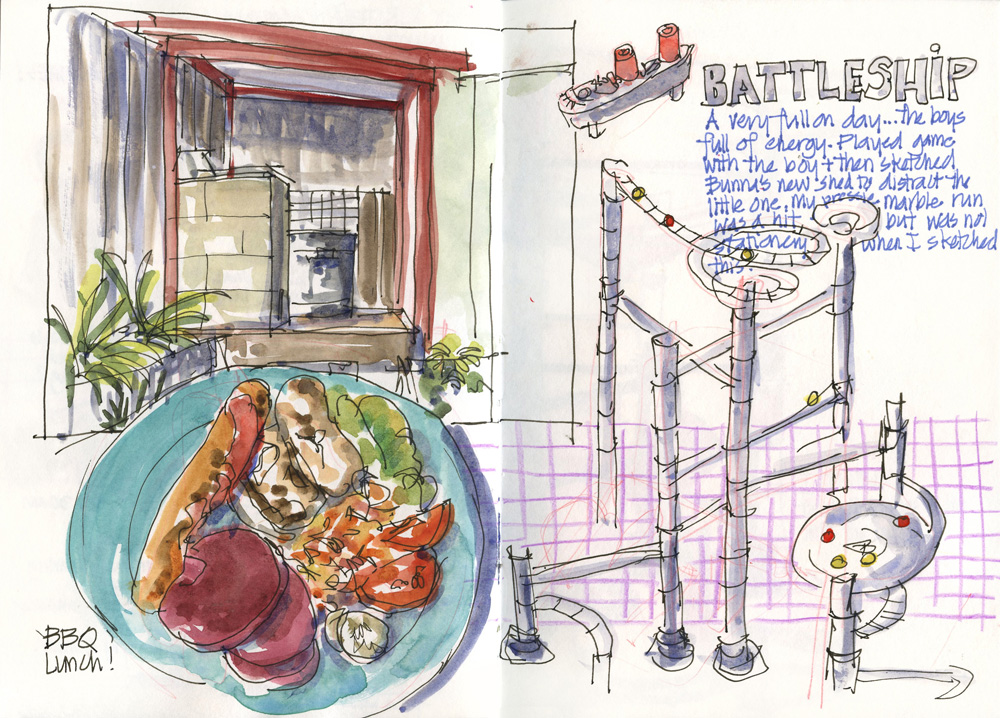 BATTLESHIP
A very full on day... the boys
full of energy. Played game
with the boy + then sketched
Bunnu's new shed to distract the
little one. My pressie marble run
was a hit but was not
stationery when I sketched
this.
BBQ
Lunch!